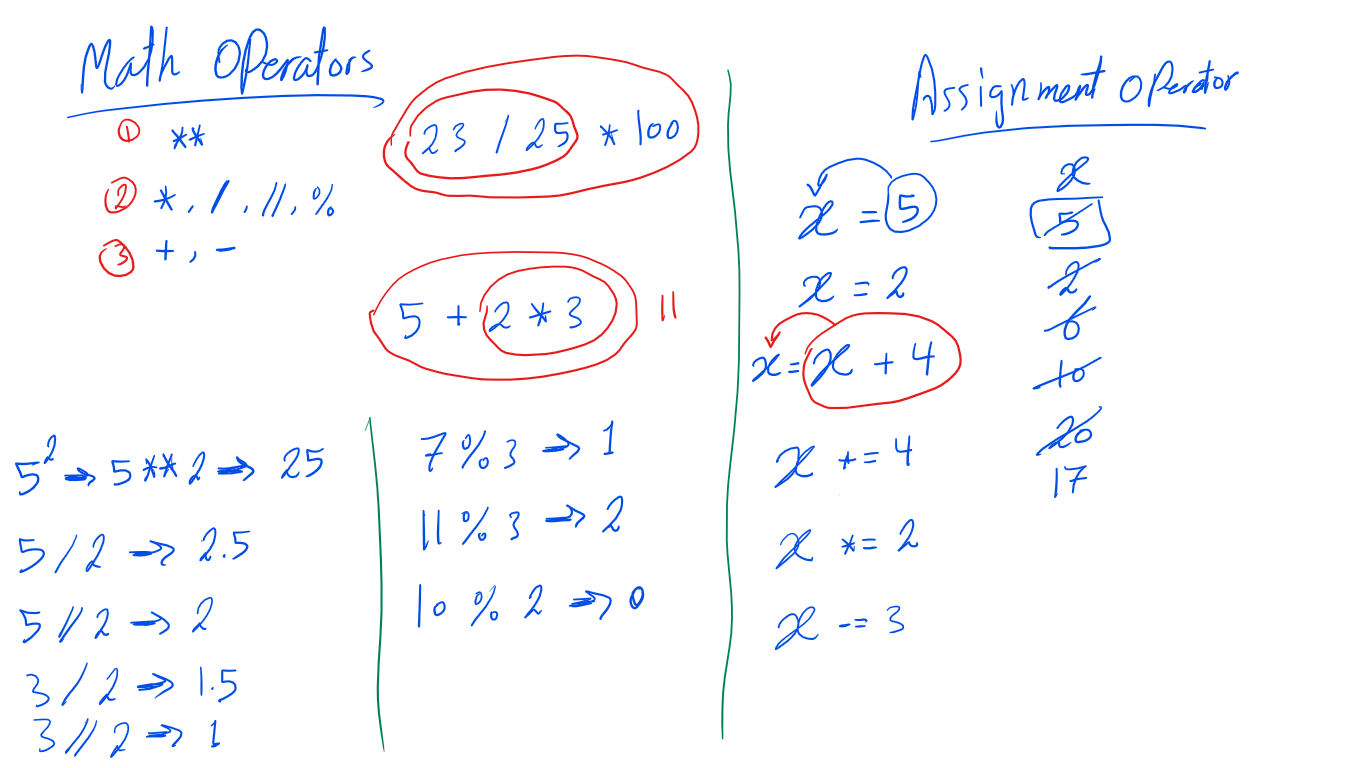 Math Operators
① **
② *, /, //, %
③ +, -
23 / 25 * 100
5 + 2 * 3 11
5² → 5**2 → 25
5 / 2 → 2.5
5 // 2 → 2
3 / 2 → 1.5
3 // 2 → 1
7 % 3 → 1
11 % 3 → 2
10 % 2 → 0
Assignment operator
x = 5
x = 2
x = x + 4
x += 4
x *= 2
x -= 3
x
5
2
6
10
20
17